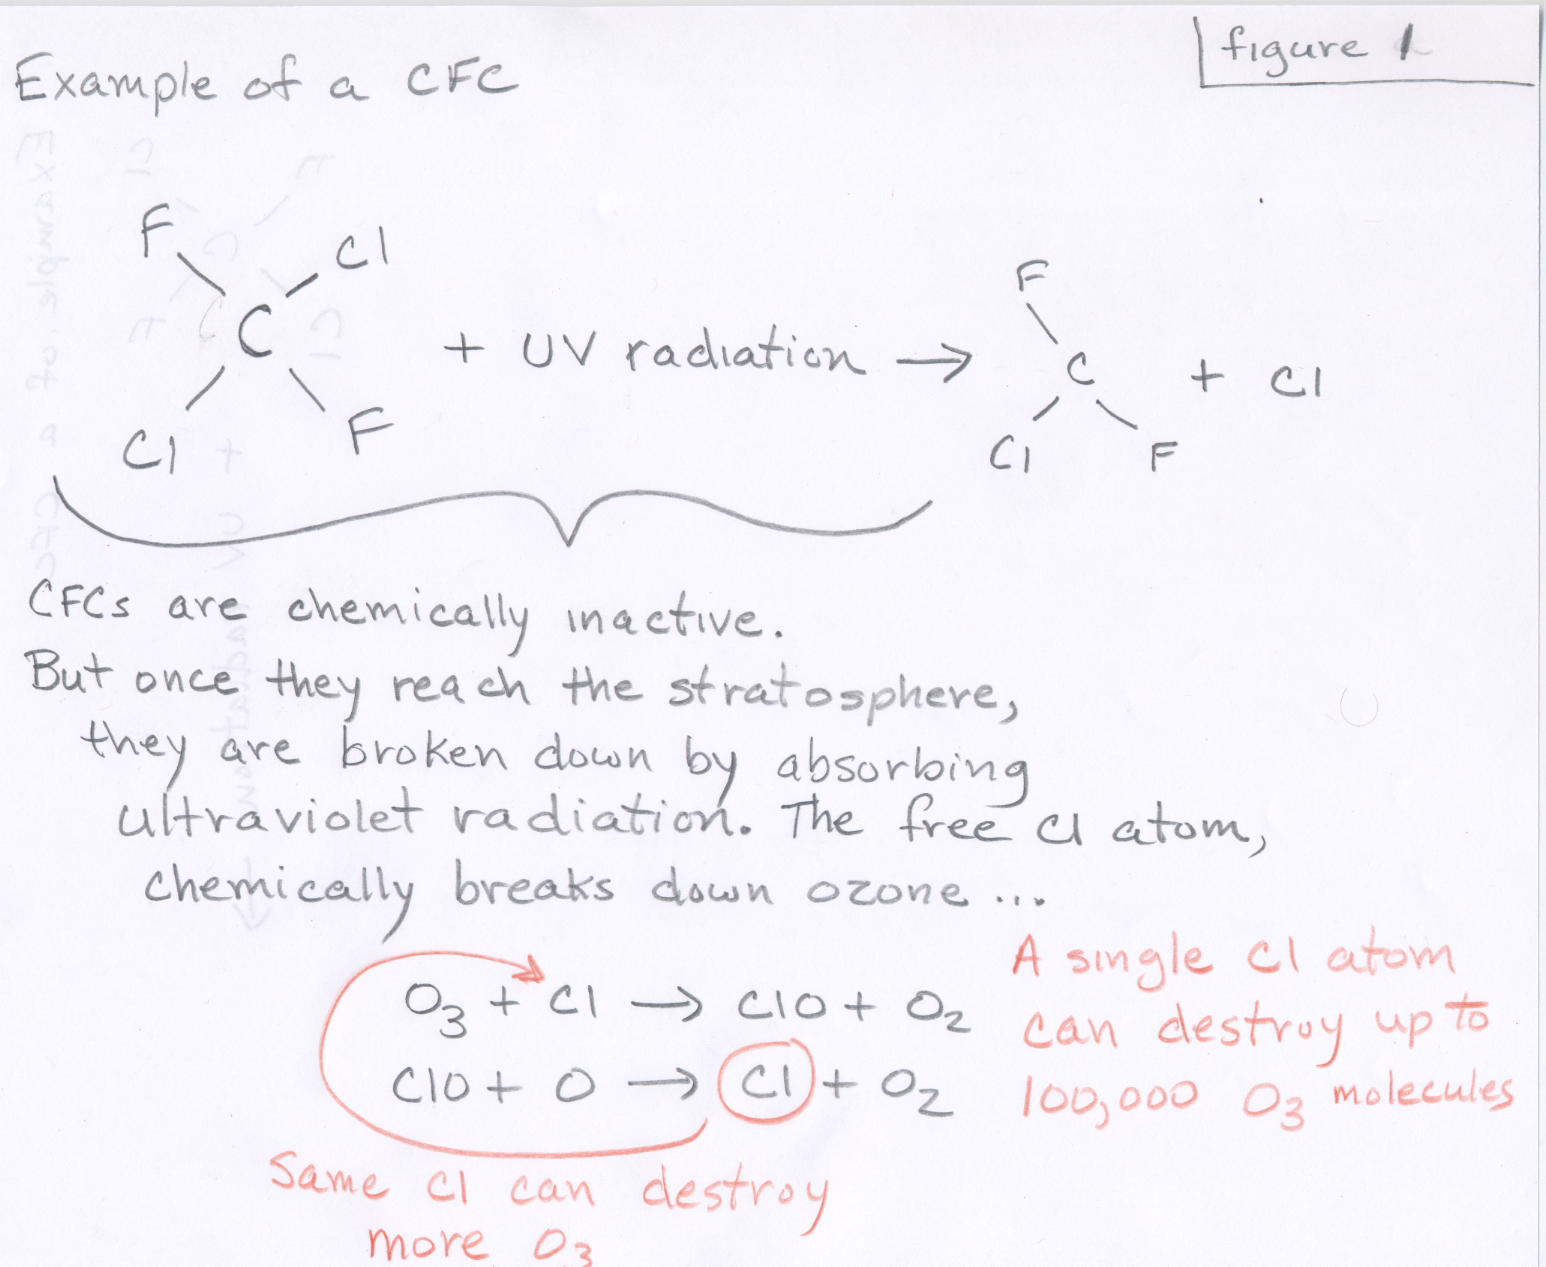 figure 1
Example of a CFC
F Cl
C
Cl F
+ UV radiation →
F
C
Cl F
+ Cl
CFCs are chemically inactive.
But once they reach the stratosphere,
they are broken down by absorbing
ultraviolet radiation. The free Cl atom,
chemically breaks down ozone ...
O₃ + Cl → ClO + O₂
ClO + O → Cl + O₂
A single Cl atom
can destroy up to
100,000 O₃ molecules
Same Cl can destroy
more O₃